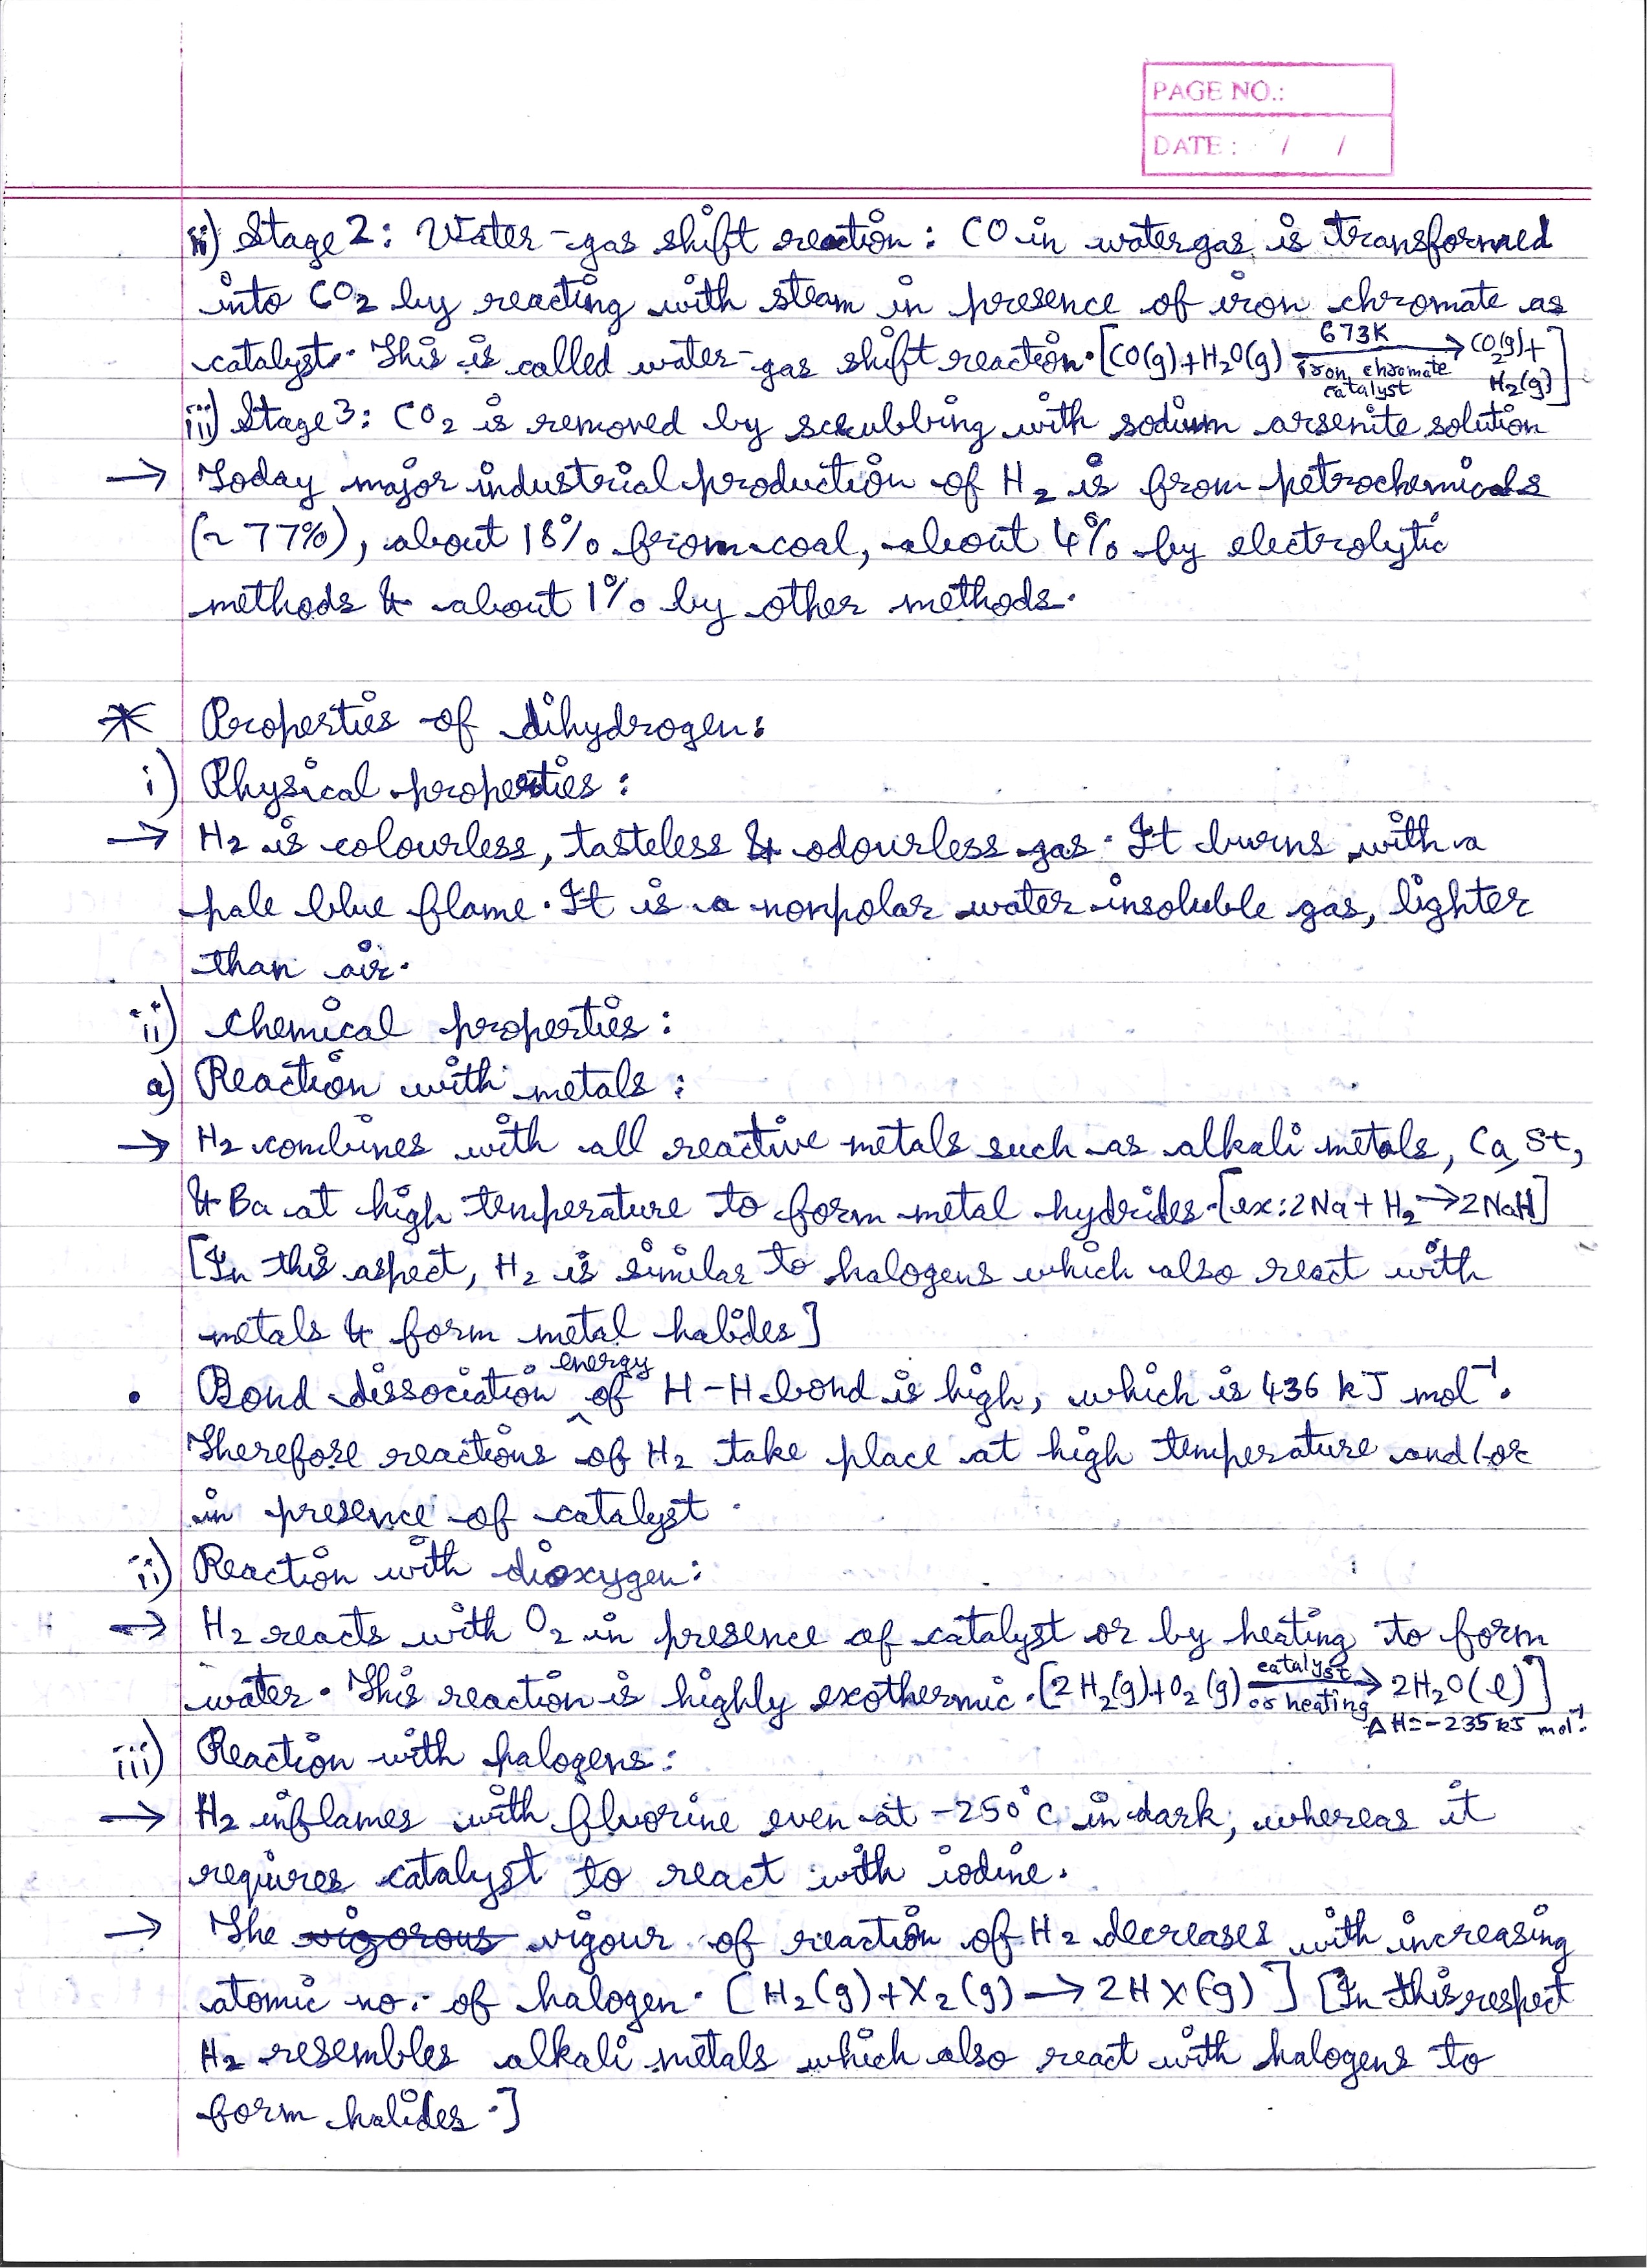 PAGE NO.:
DATE: / /
ii) Stage 2: Water-gas shift reaction: CO in watergas is transformed
into CO2 by reacting with steam in presence of iron chromate as
catalyst. This is called water-gas shift reaction. [CO(g)+H2O(g) 673K → iron chromate catalyst CO2(g)+ H2(g)]
iii) Stage 3: CO2 is removed by scrubbing with sodium arsenite solution
→ Today major industrial production of H2 is from petrochemicals
(~77%), about 18% from coal, about 4% by electrolytic
methods & about 1% by other methods.
* Properties of dihydrogen:
i) Physical properties:
→ H2 is colourless, tasteless & odourless gas. It burns with a
pale blue flame. It is a nonpolar water insoluble gas, lighter
than air.
ii) Chemical properties:
a) Reaction with metals:
→ H2 combines with all reactive metals such as alkali metals, Ca, St,
& Ba at high temperature to form metal hydrides. [ex: 2Na + H2 → 2NaH]
[In this aspect, H2 is similar to halogens which also react with
metals & form metal halides]
• Bond dissociation energy of H-H bond is high, which is 436 kJ mol⁻¹.
Therefore reactions of H2 take place at high temperature and/or
in presence of catalyst.
ii) Reaction with dioxygen:
→ H2 reacts with O2 in presence of catalyst or by heating to form
water. This reaction is highly exothermic. [2H2(g)+O2(g) catalyst → or heating 2H2O(l)]
ΔH=-235 kJ mol⁻¹.
iii) Reaction with halogens:
→ H2 inflames with fluorine even at -250°C in dark, whereas it
requires catalyst to react with iodine.
→ The vigorous vigour of reaction of H2 decreases with increasing
atomic no. of halogen. [H2(g)+X2(g) → 2HX(g)] [In this respect
H2 resembles alkali metals which also react with halogens to
form halides.]